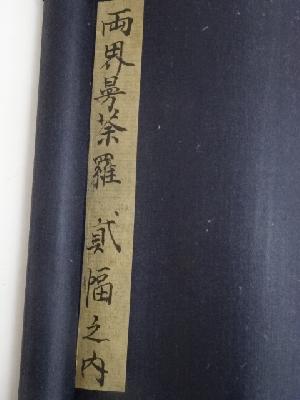 両界曼荼羅 貳幅之内